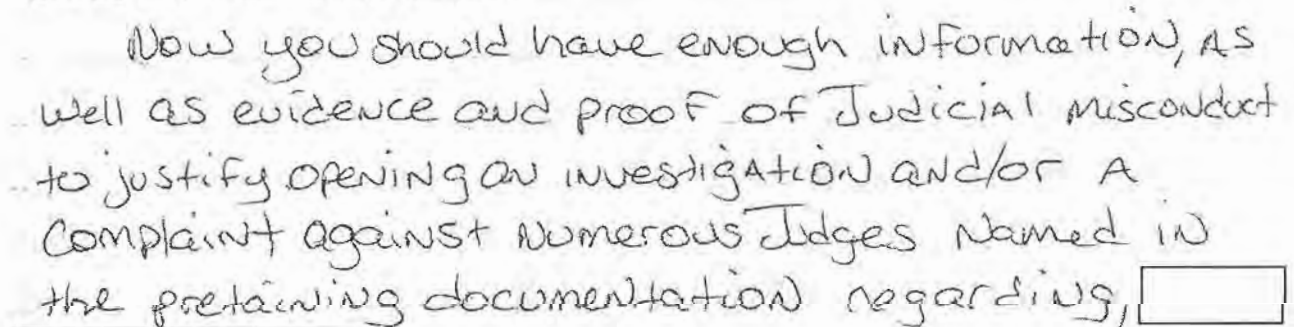 Now you should have enough information, as
well as evidence and proof of Judicial misconduct
to justify opening an investigation and/or a
complaint against numerous Judges named in
the pretaining documentation regarding,